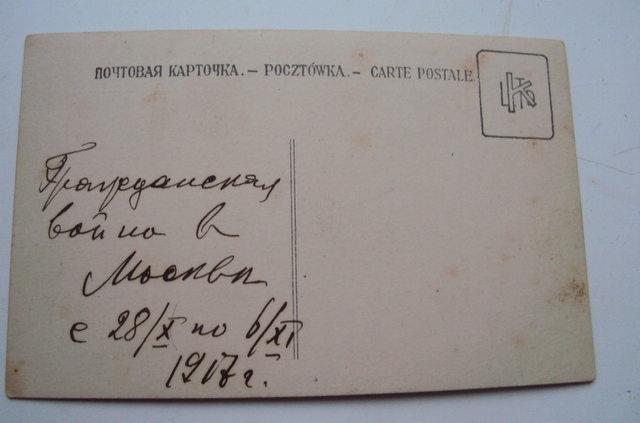 ПОЧТОВАЯ КАРТОЧКА. — POCZTÓWKA. — CARTE POSTALE.
Гражданская
война в
Москве
с 28/X по 6/XI
1917 г.